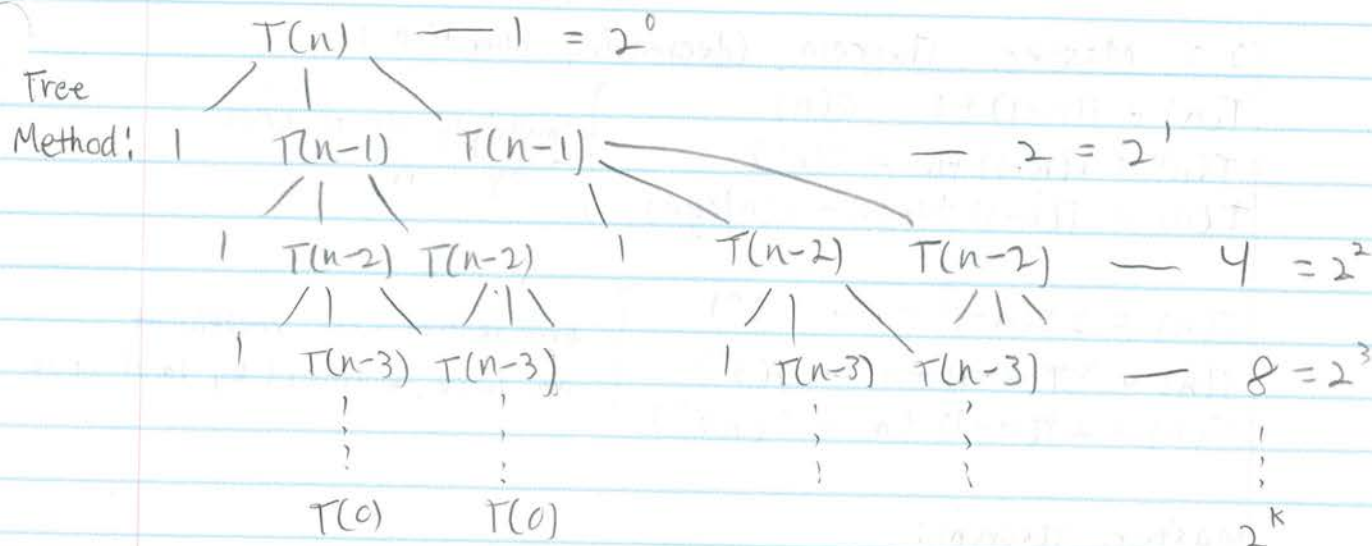 T(n) — 1 = 2⁰
Tree
Method: 1 T(n-1) T(n-1) — 2 = 2¹
1 T(n-2) T(n-2) 1 T(n-2) T(n-2) — 4 = 2²
1 T(n-3) T(n-3) 1 T(n-3) T(n-3) — 8 = 2³
T(0) T(0)
2ᵏ